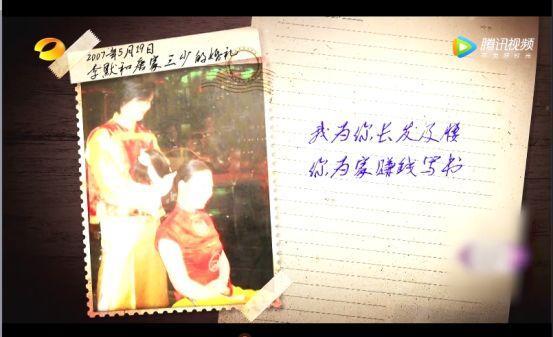 2007年5月19日
李默和唐家三少的婚礼
腾讯视频
不负好时光
我为你长发及腰
你为家赚钱写书